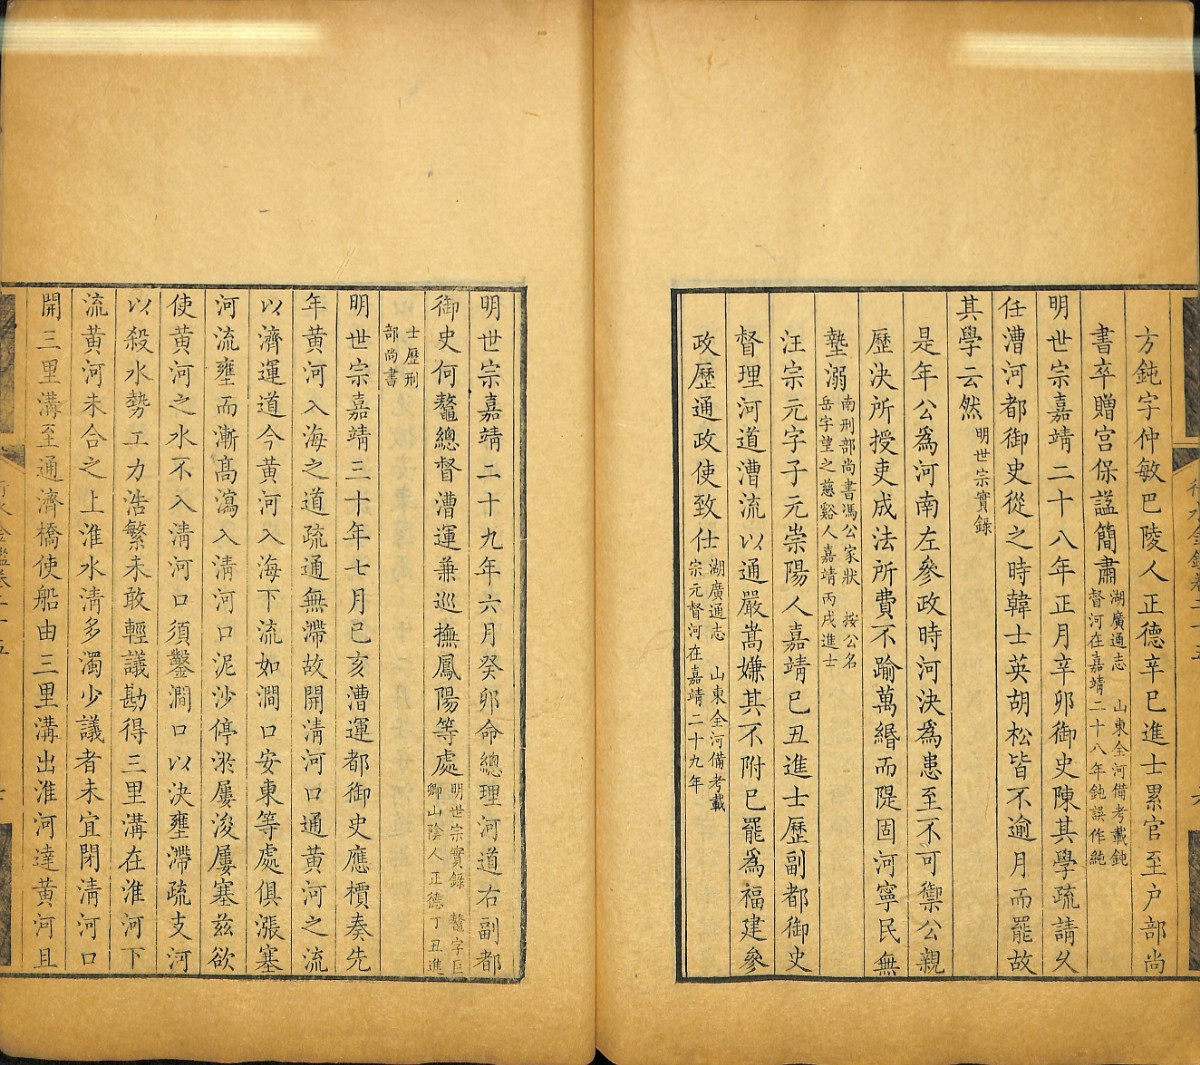 方鈍字仲敏巴陵人正德辛巳進士累官至户部尚
書卒贈宫保諡簡肅湖廣通志　山東全河備考載鈍督河在嘉靖二十八年鈍誤作純
明世宗嘉靖二十八年正月辛卯御史陳其學疏請久
任漕河都御史從之時韓士英胡松皆不逾月而罷故
其學云然明世宗實錄
是年公爲河南左參政時河決爲患至不可禦公親
歷決所授吏成法所費不踰萬緡而隄固河寧民無
墊溺南刑部尚書馮公家狀　按公名岳字望之慈谿人嘉靖丙戌進士
汪宗元字子元崇陽人嘉靖己丑進士歷副都御史
督理河道漕流以通嚴嵩嫌其不附己罷爲福建參
政歷通政使致仕湖廣通志　山東全河備考載宗元督河在嘉靖二十九年
明世宗嘉靖二十九年六月癸卯命總理河道右副都
御史何鼇總督漕運兼巡撫鳳陽等處明世宗實錄　鼇字巨卿山陰人正德丁丑進
士歷刑部尚書
明世宗嘉靖三十年七月己亥漕運都御史應檟奏先
年黄河入海之道疏通無滯故開清河口通黄河之流
以濟運道今黄河入海下流如澗口安東等處俱漲塞
河流壅而漸髙瀉入清河口泥沙停淤屢浚屢塞兹欲
使黄河之水不入清河口須鑿澗口以決壅滯疏支河
以殺水勢工力浩繁未敢輕議勘得三里溝在淮河下
流黄河未合之上淮水清多濁少議者未宜閉清河口
開三里溝至通濟橋使船由三里溝出淮河達黄河且